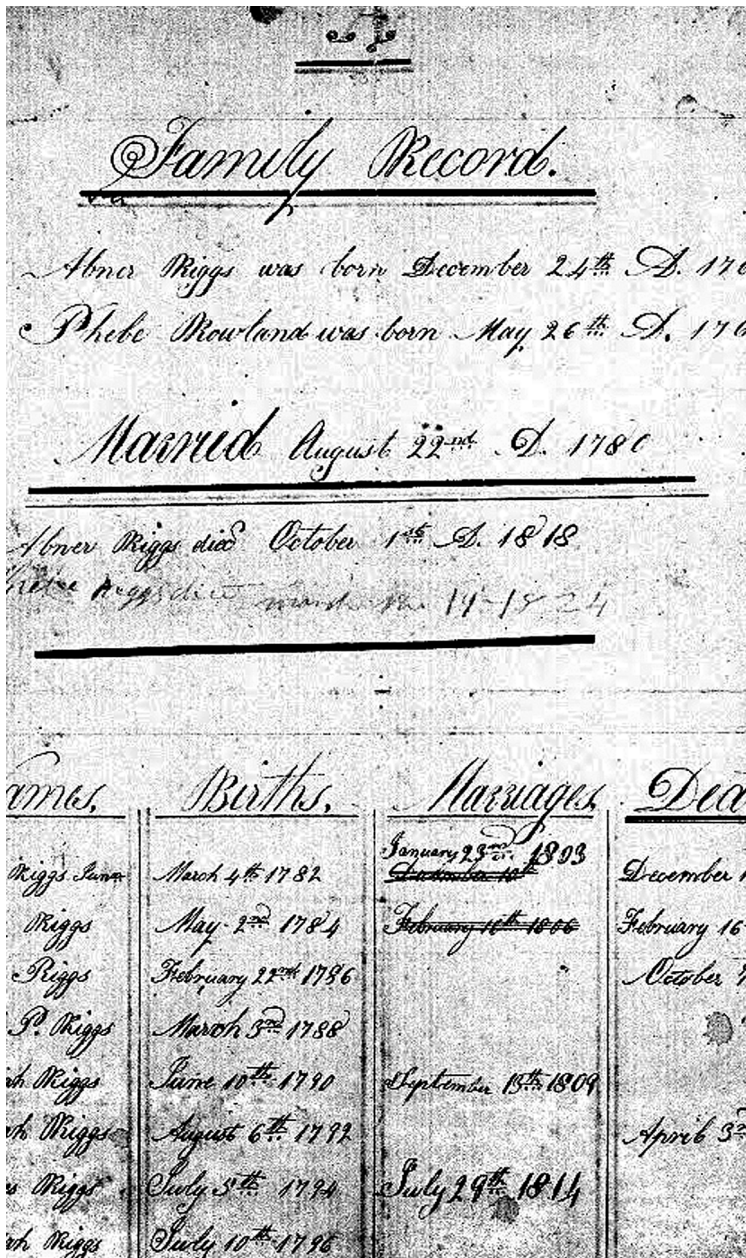 Family Record.
Abner Riggs was born December 24th A.D. 176
Phebe Rowland was born May 26th A.D. 176
Married August 22nd A.D. 1780
Abner Riggs died October 1st A.D. 1818
Riggs died 1824
ames. Births. Marriages. Dea
January 23rd 1803
Riggs Junr March 4th 1782 December
Riggs May 2nd 1784 February 16th 1806 February 16
Riggs February 22nd 1786 October
P. Riggs March 3rd 1788
ah Riggs June 10th 1790 September 15th 1809
ah Riggs August 6th 1792 April 3
s Riggs July 5th 1794 July 29th 1814
ah Riggs July 10th 1796